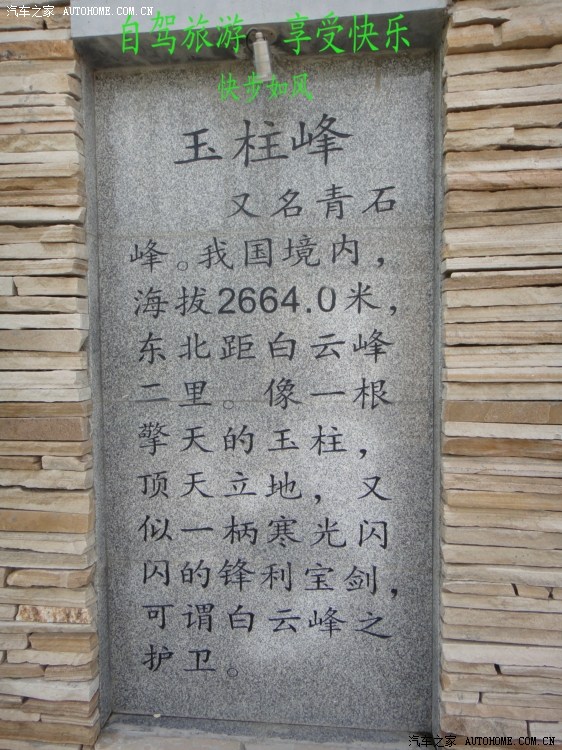 汽车之家 AUTOHOME.COM.CN
自驾旅游 享受快乐
快步如风
玉柱峰
又名青石
峰。我国境内，
海拔2664.0米，
东北距白云峰
二里。像一根
擎天的玉柱，
顶天立地，又
似一柄寒光闪
闪的锋利宝剑，
可谓白云峰之
护卫。
汽车之家 AUTOHOME.COM.CN